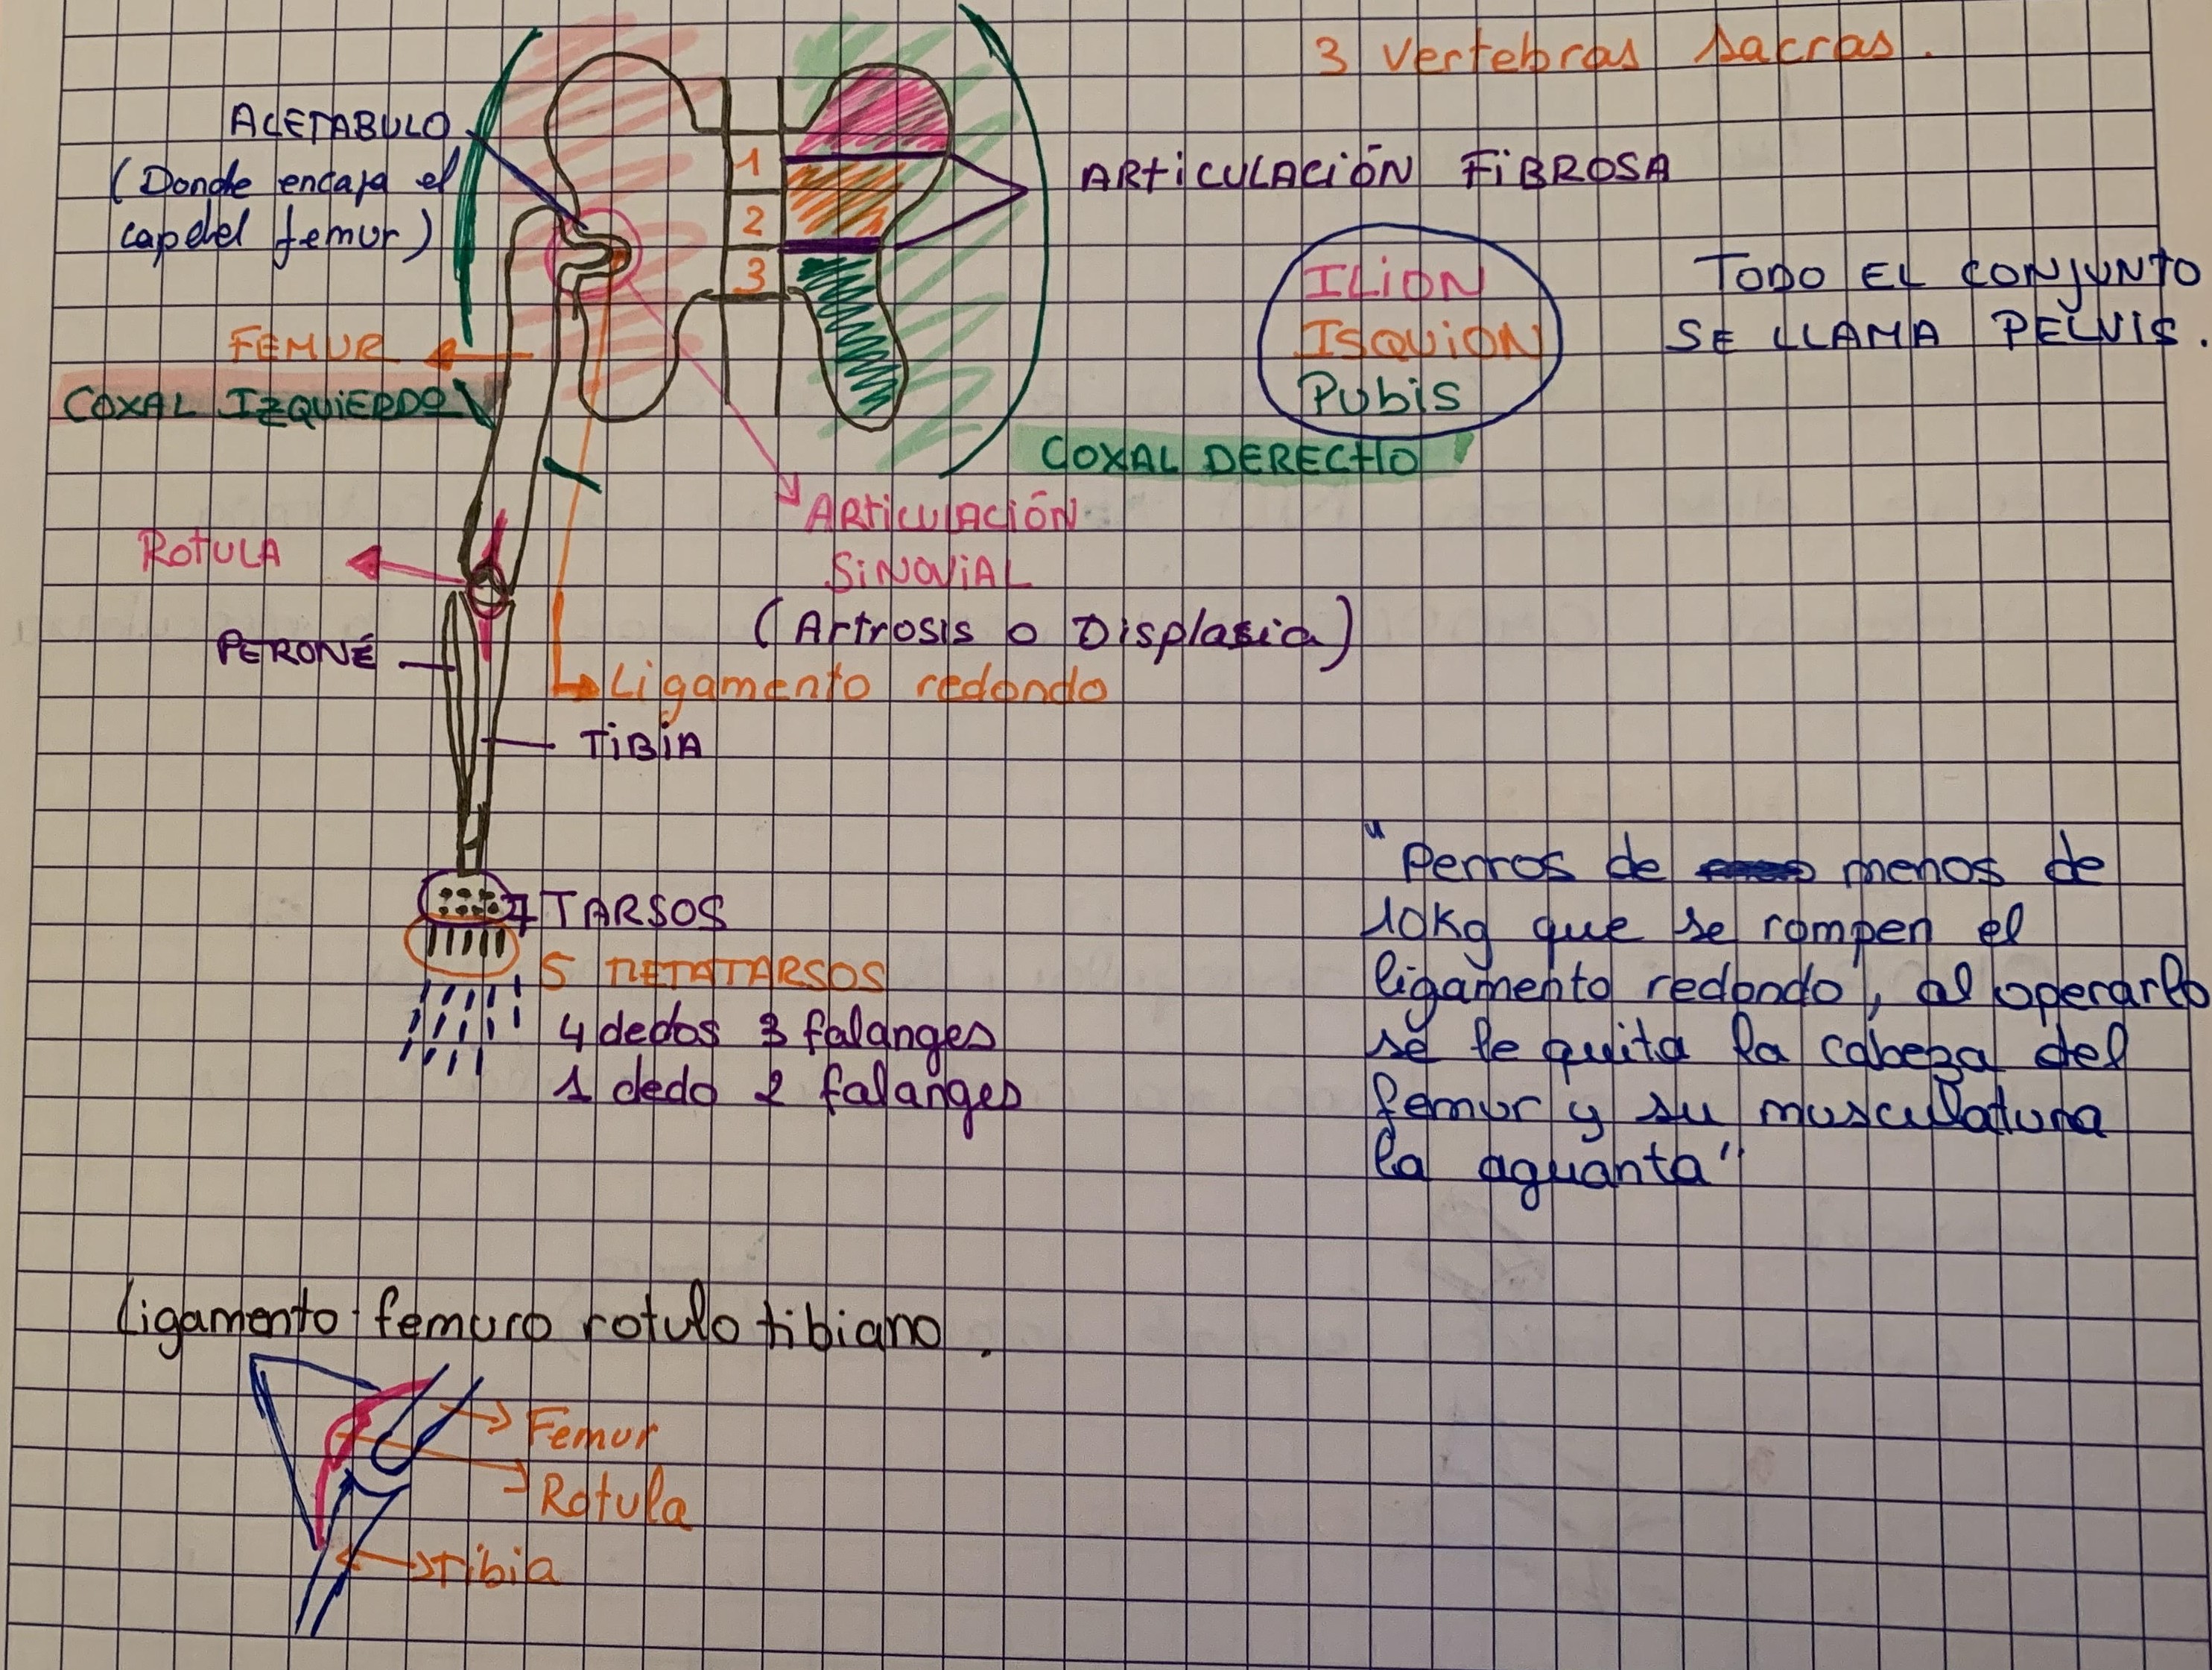 3 vertebras sacras.
ACETABULO
(Donde encaja el
cap del femur)
1
2
3
ARTiCULACiÓN FiBROSA
ILiON
ISQUiON
Pubis
TODO EL CONJUNTO
SE LLAMA PELVIS.
FEMUR
COXAL IZQUiERDO
COXAL DERECHO
ARTiCULACIÓN
SiNOViAL
(Artrosis o Displasia)
ROTULA
PERONÉ
Ligamento redondo
TiBiA
7 TARSOS
5 METATARSOS
4 dedos 3 falanges
1 dedo 2 falanges
"Perros de menos de
10Kg que se rompen el
ligamento redondo, al operarlo
se le quita la cabeza del
femur y su musculatura
la aguanta"
Ligamento femuro rotulo tibiano.
Femur
Rotula
Tibia